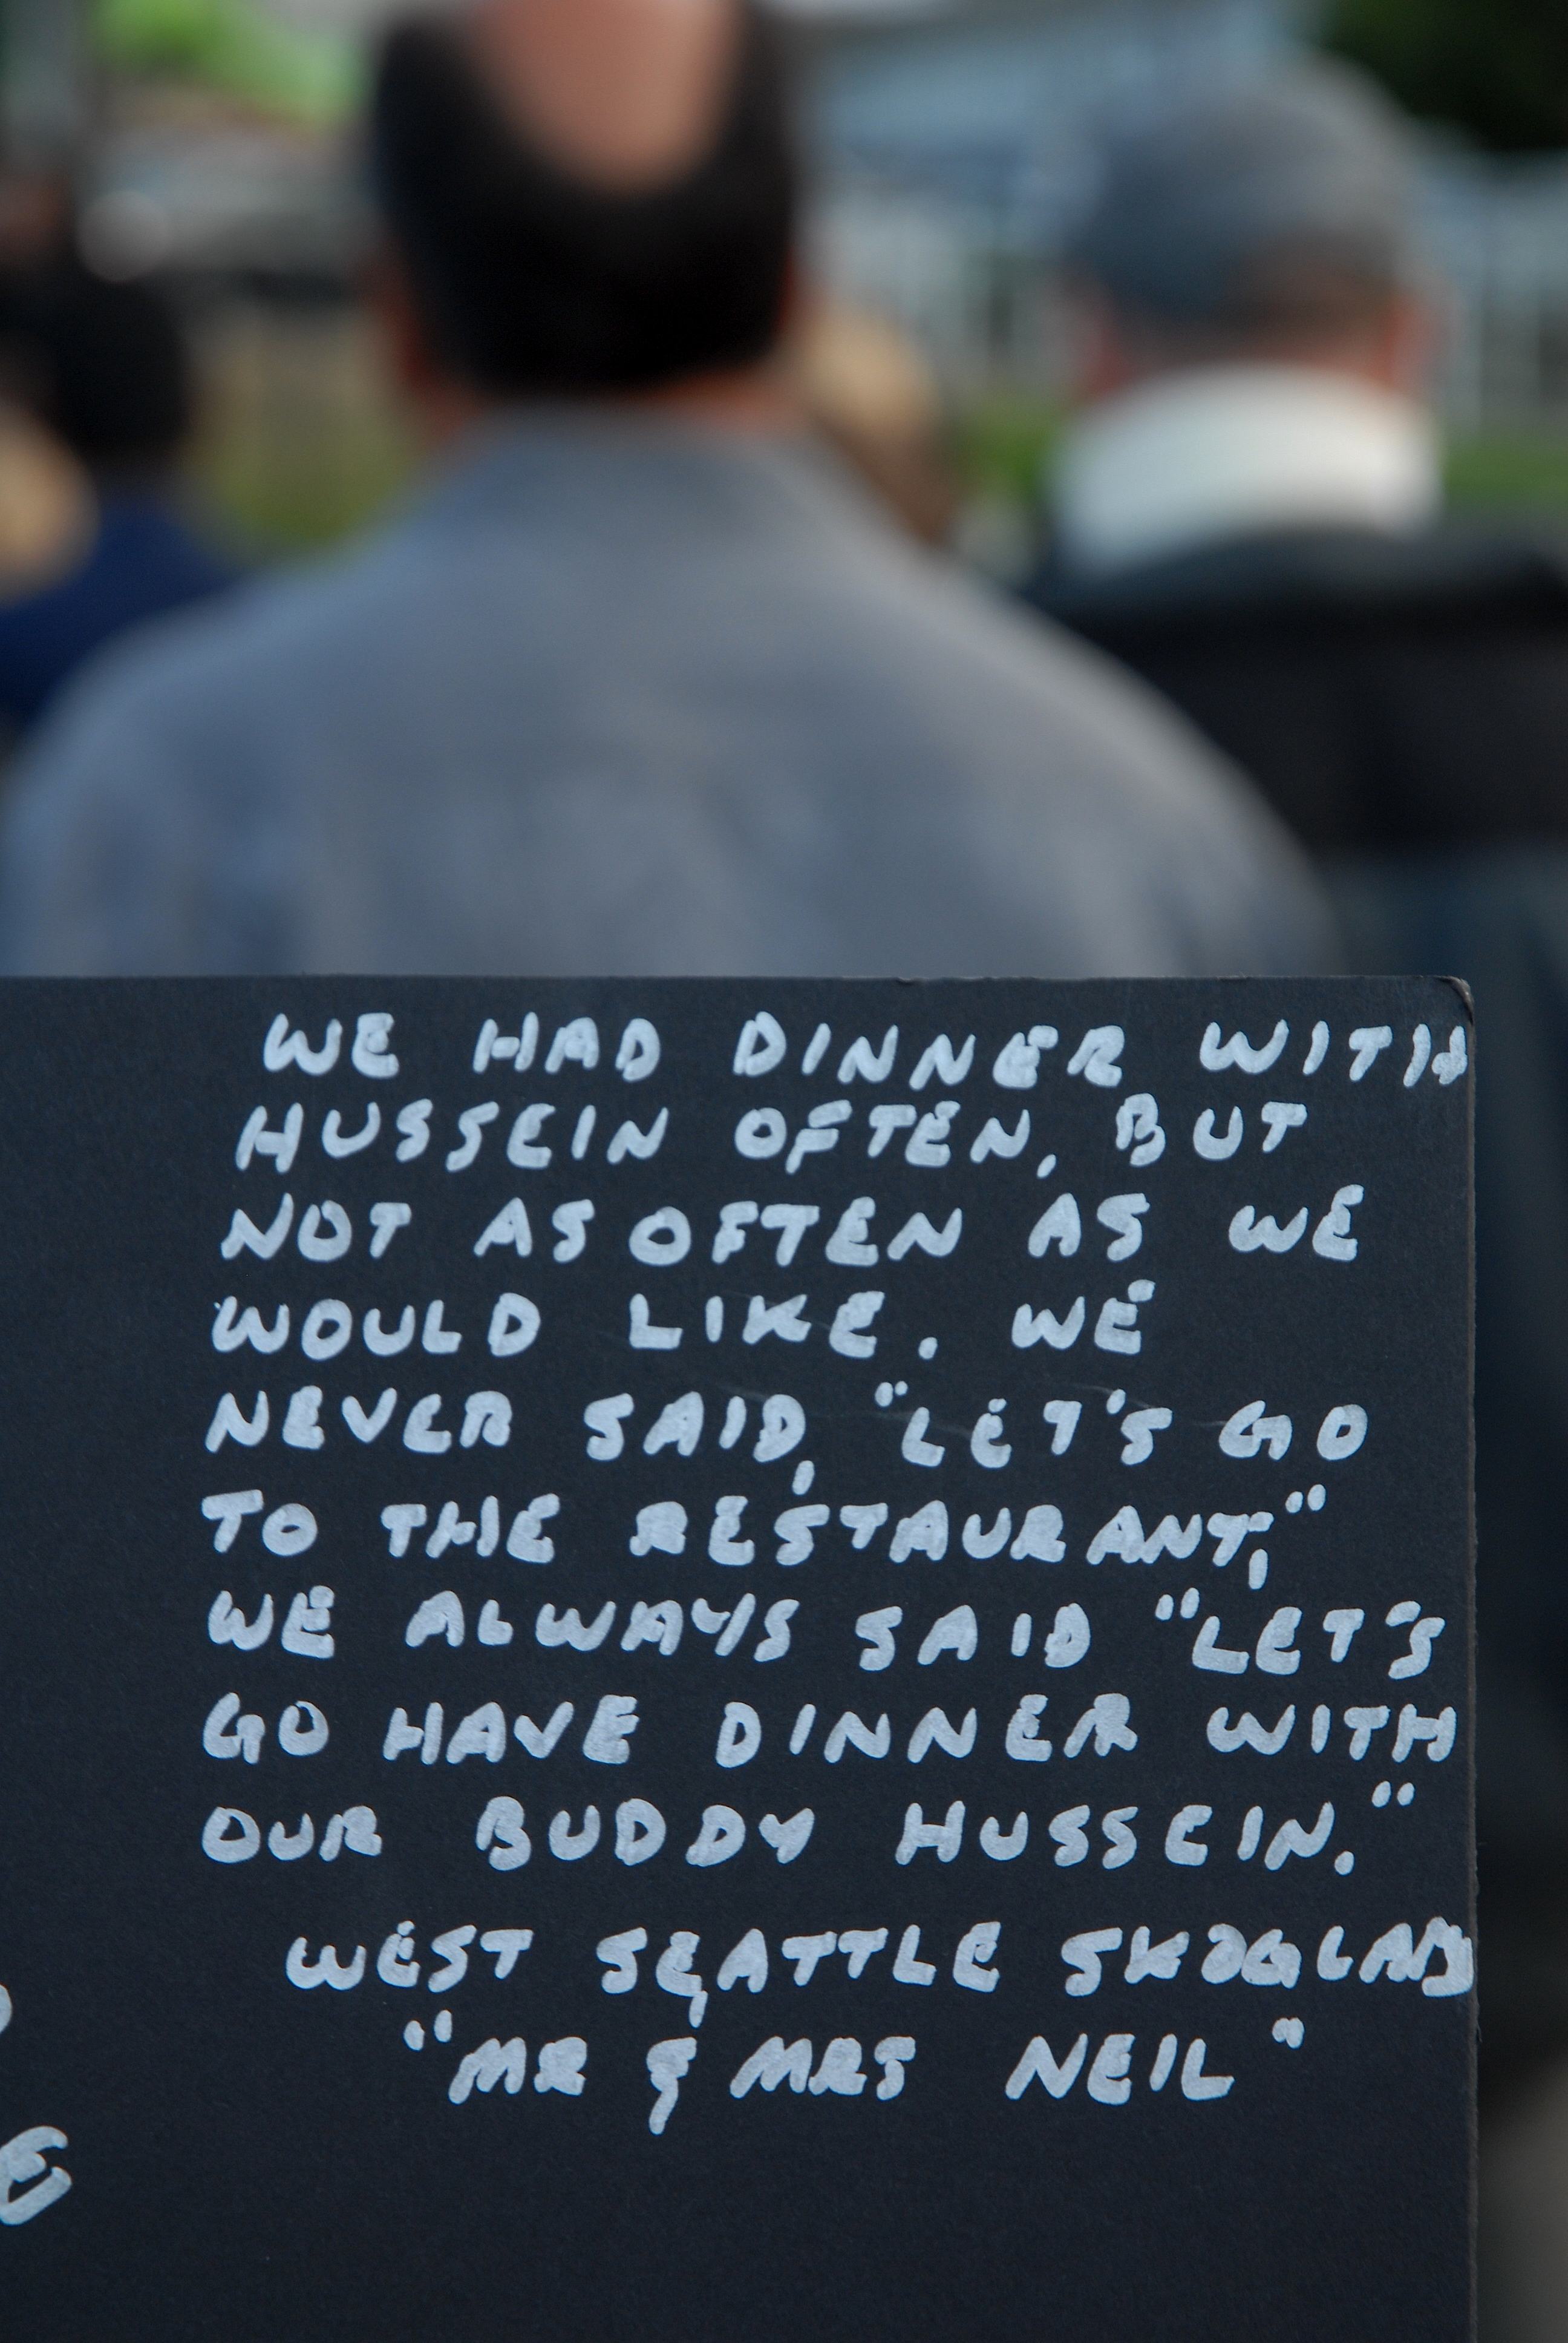 WE HAD DINNER WITH
HUSSEIN OFTEN, BUT
NOT AS OFTEN AS WE
WOULD LIKE. WE
NEVER SAID, "LET'S GO
TO THE RESTAURANT,"
WE ALWAYS SAID "LET'S
GO HAVE DINNER WITH
OUR BUDDY HUSSEIN."
WEST SEATTLE SKOGLAND
"MR & MRS NEIL"
E